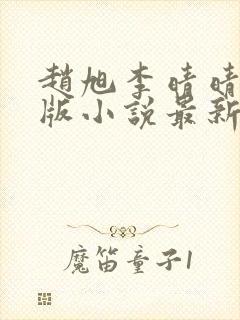 趙旭李晴晴
版小說最新
魔笛童子1